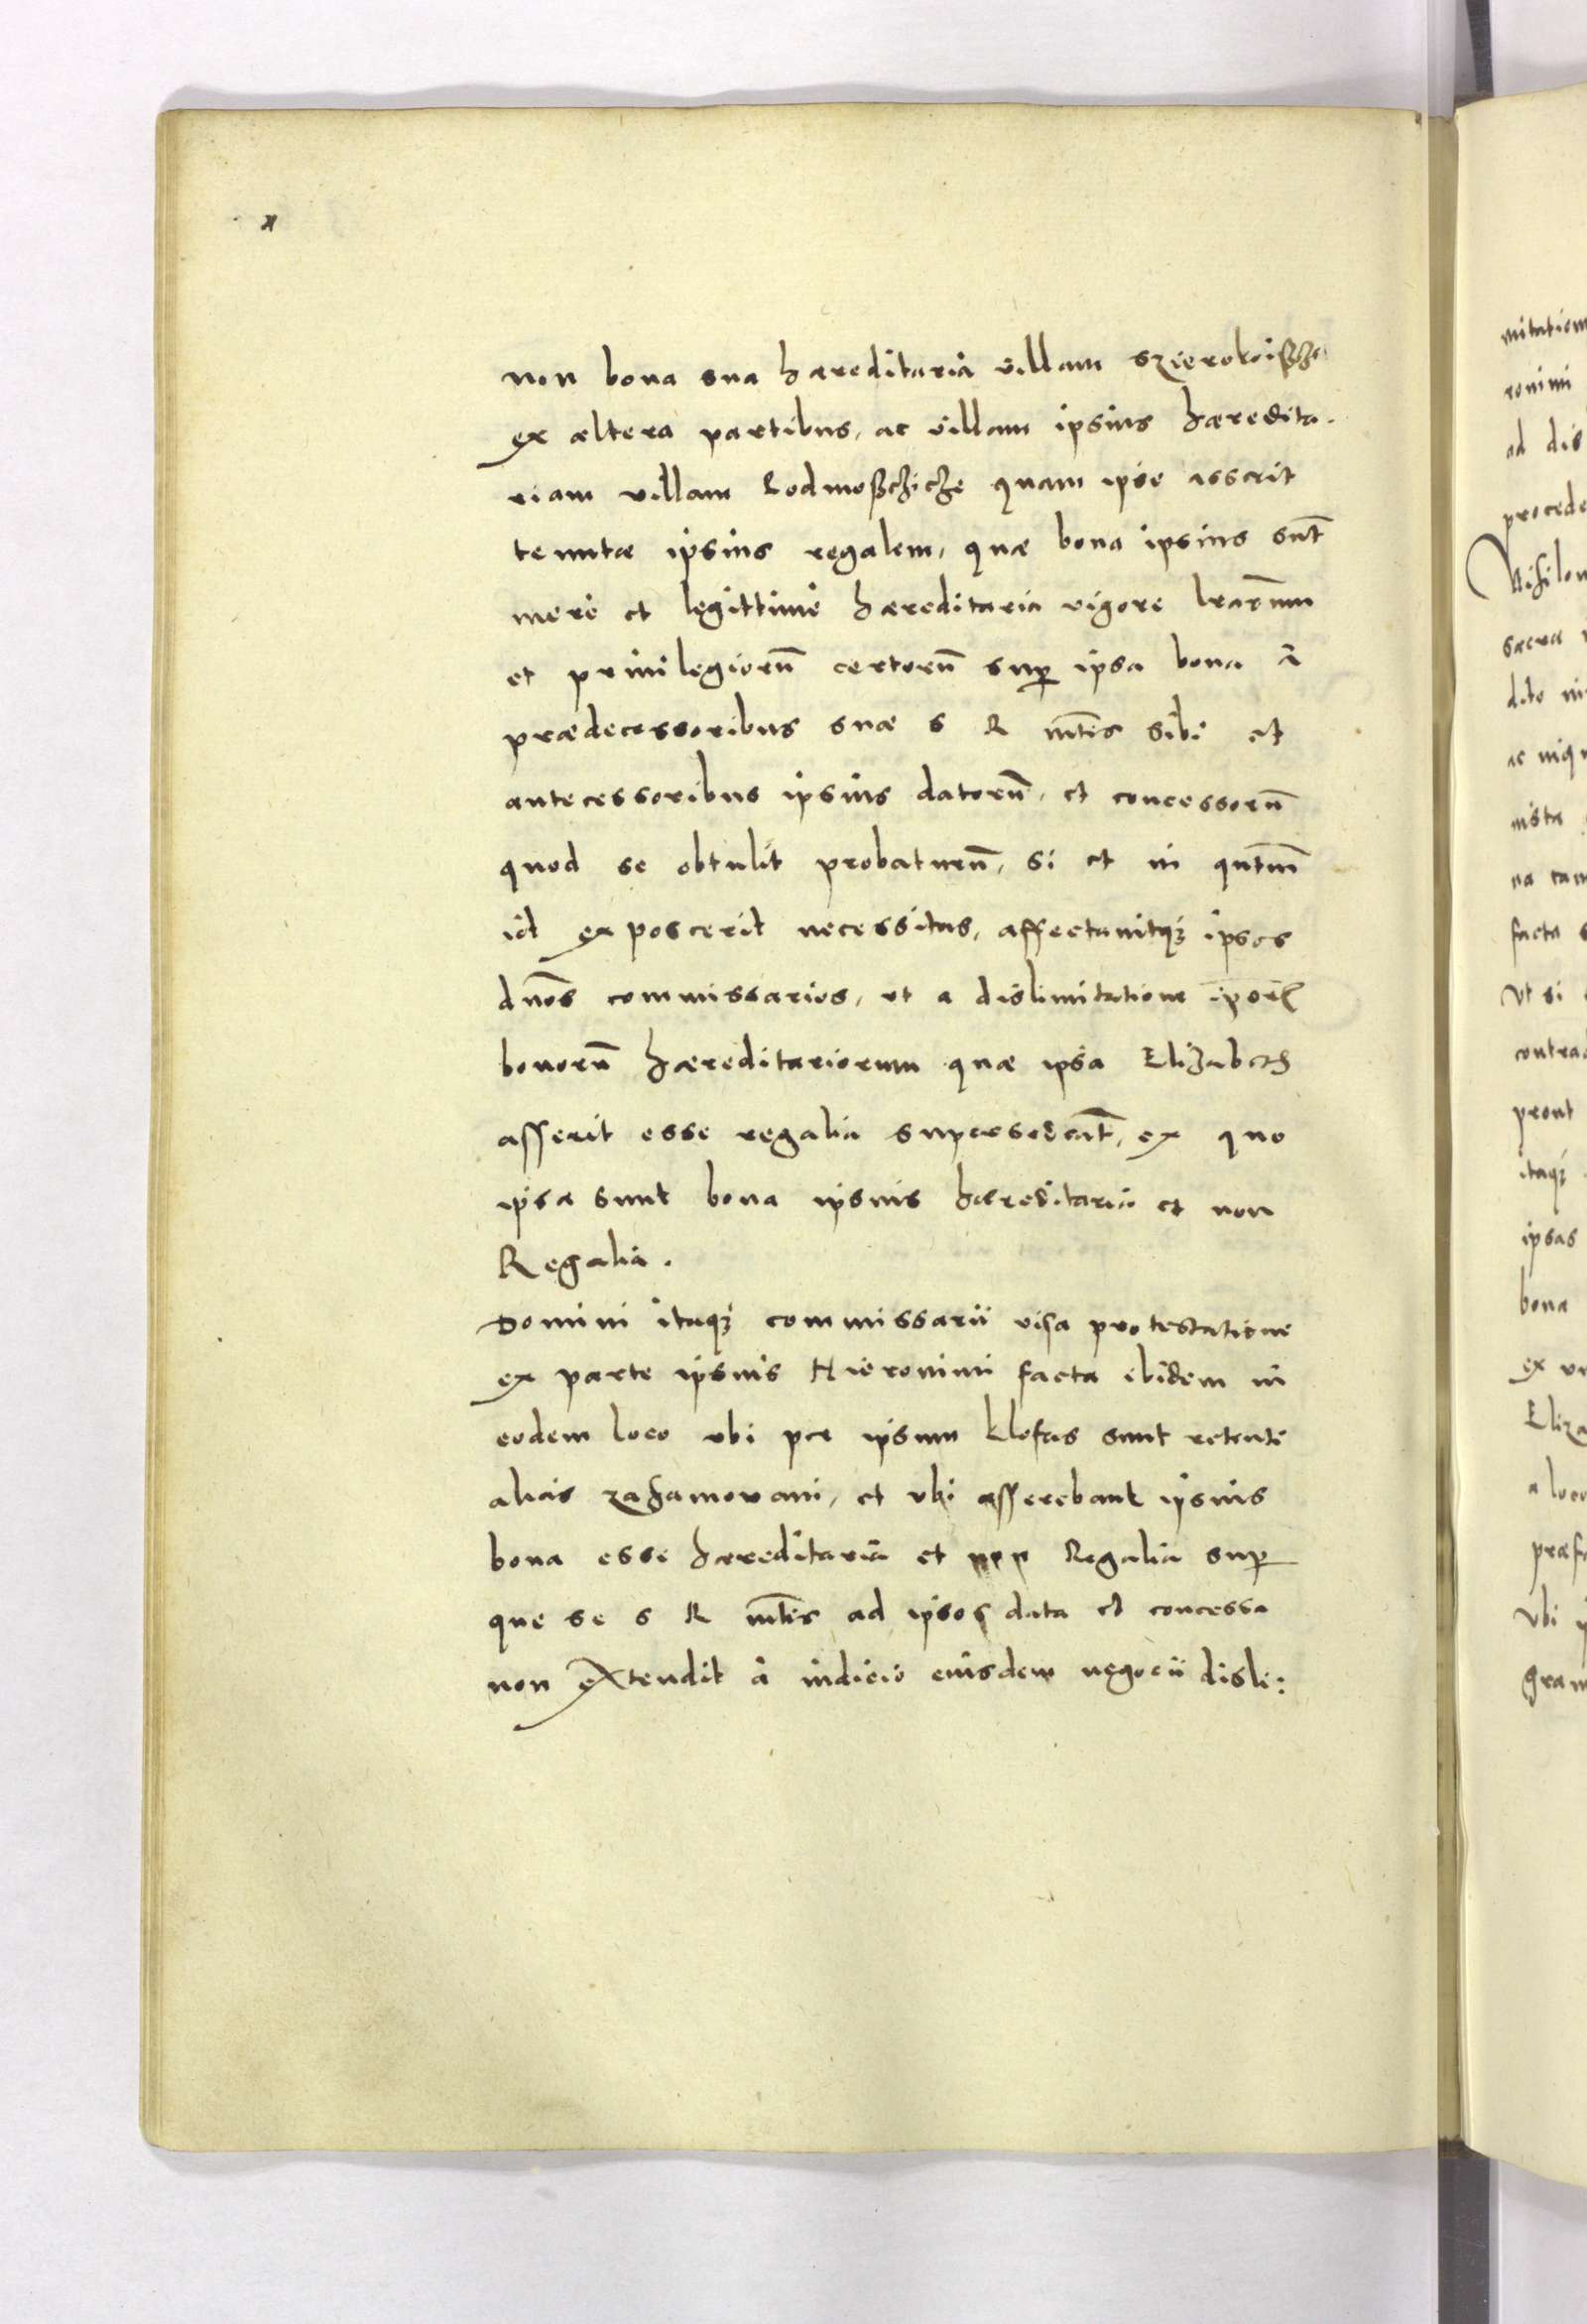 non bona sua hæreditaria villam
ex altera partibus, ac villam ipsius hæredita-
riam villam quam ipse asserit
tenutæ ipsius regalem, quæ bona ipsius sūt
merè et legittimè hæreditaria vigore lrarūm
et priuilegiorū certorū sup ipsa bona à
prædecessoribus suæ S R mtis sibi et
antecessoribus ipsius datorū, et concessorū
quod se obtulit probaturū, si et in qntm
id exposcerit necessitas, affectauitq3 ipsos
dnos commissarios, vt a dislimitatione ipor
bonorū hæreditariorum quæ ipsa Elizabeth
asserit esse regalia supersedeāt, ex quo
ipsa sunt bona ipsius hæreditaria et non
Regalia.
Domini itaq3 commissarii visa protestatione
ex parte ipsius Hieronimi facta ibidem in
eodem loco vbi per ipsum sunt retenti
alias zahamowani, et vbi asserebant ipsius
bona esse hæreditaria et non Regalia sup
que se S R mtis ad ipsos data et concessa
non extendit à iudicio eiusdem negocii disli:
mitation
ronimi
ad dis
procede
sacra
dito
ac
na tam
facta
Vt si
contra
prout
itaq3
ipsas
bona
ex
Eliza
a loco
præfa
Vbi
gran